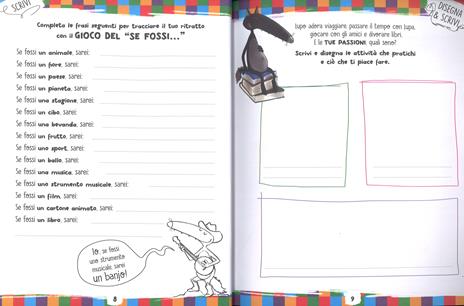 SCRIVI
Completa le frasi seguenti per tracciare il tuo ritratto
con il GIOCO DEL “SE FOSSI...”
Se fossi un animale, sarei:
Se fossi un fiore, sarei:
Se fossi un paese, sarei:
Se fossi un pianeta, sarei:
Se fossi una stagione, sarei:
Se fossi un cibo, sarei:
Se fossi una bevanda, sarei:
Se fossi un frutto, sarei:
Se fossi uno sport, sarei:
Se fossi un ballo, sarei:
Se fossi una musica, sarei:
Se fossi uno strumento musicale, sarei:
Se fossi un film, sarei:
Se fossi un cartone animato, sarei:
Se fossi un libro, sarei:
Io, se fossi
uno strumento
musicale, sarei
un banjo!
8
DISEGNA
& SCRIVI
Lupo adora viaggiare, passare il tempo con Lupa,
giocare con gli amici e divorare libri.
E le TUE PASSIONI, quali sono?
Scrivi e disegna le attività che pratichi
e ciò che ti piace fare.
9